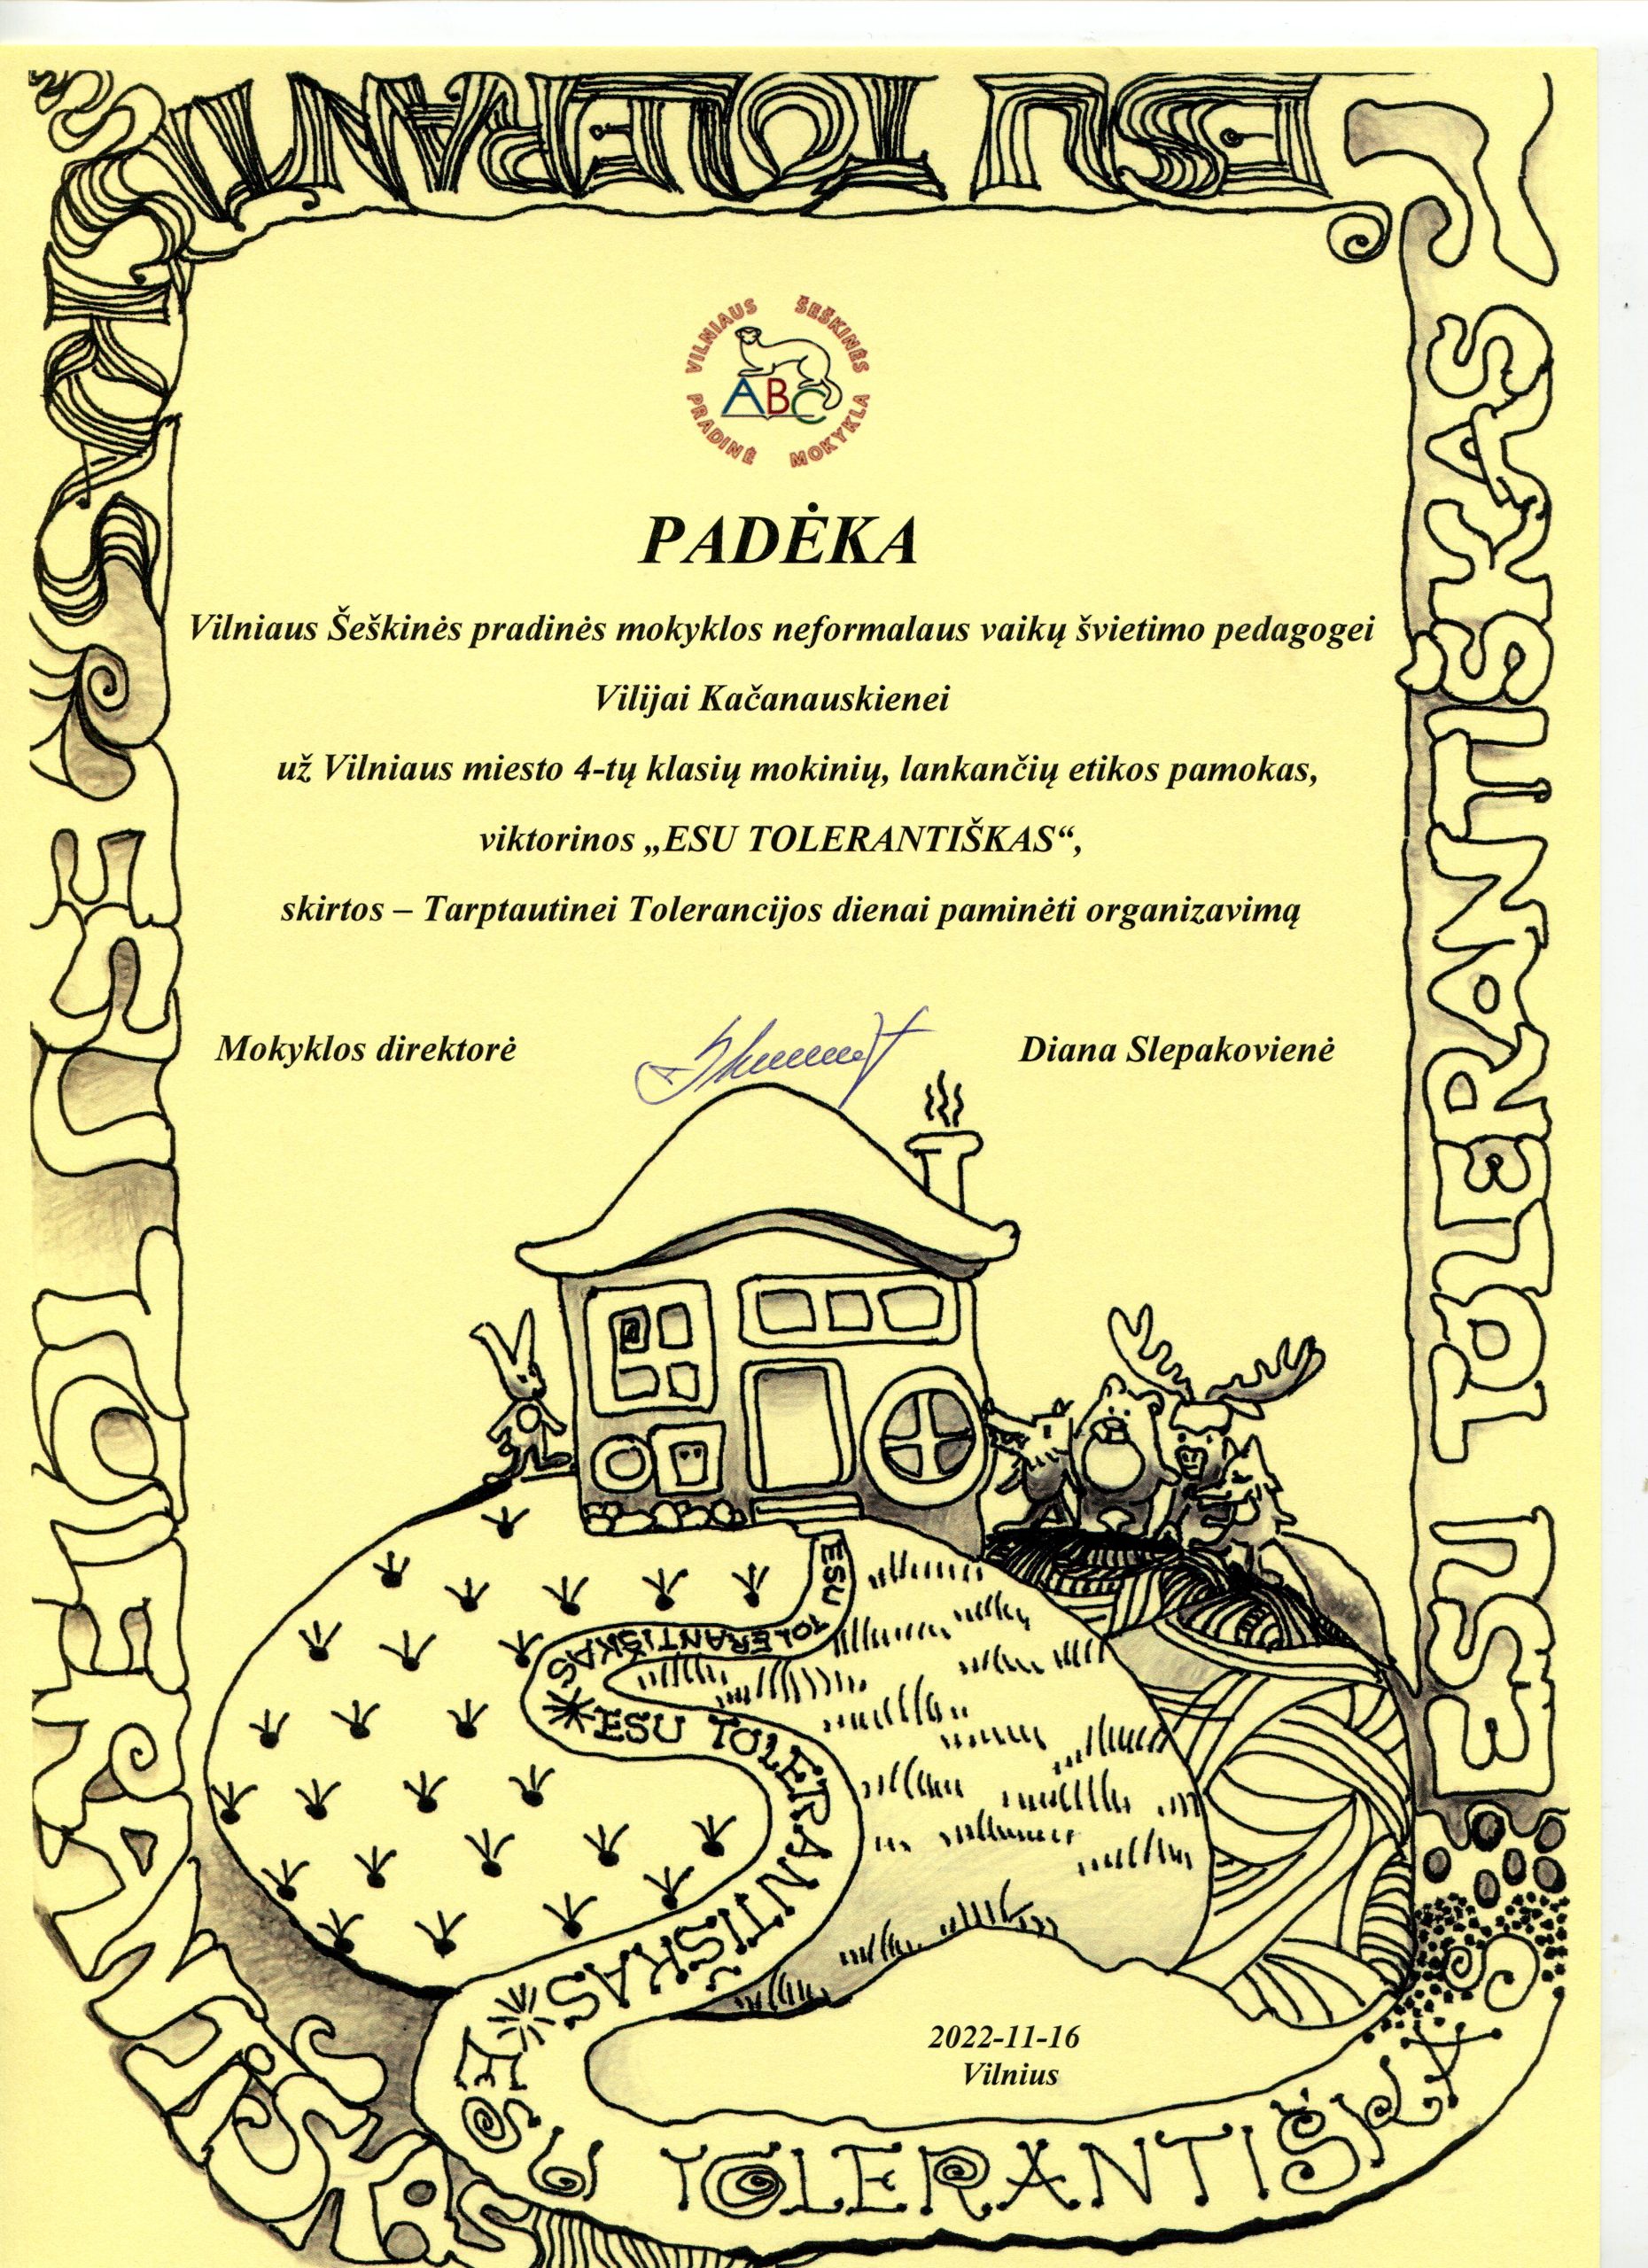 ESU TOLERANTIŠKAS
VILNIAUS ŠEŠKINĖS
ABC
PRADINĖ MOKYKLA
PADĖKA
Vilniaus Šeškinės pradinės mokyklos neformalaus vaikų švietimo pedagogei
Vilijai Kačanauskienei
už Vilniaus miesto 4-tų klasių mokinių, lankančių etikos pamokas,
viktorinos „ESU TOLERANTIŠKAS“,
skirtos – Tarptautinei Tolerancijos dienai paminėti organizavimą
Mokyklos direktorė
Diana Slepakovienė
ESU TOLERANTIŠKAS
ESU TOLERANTIŠKAS
ESU TOLERANTIŠKAS
ESU TOLERANTIŠKAS
2022-11-16
Vilnius
ESU TOLERANTIŠKAS